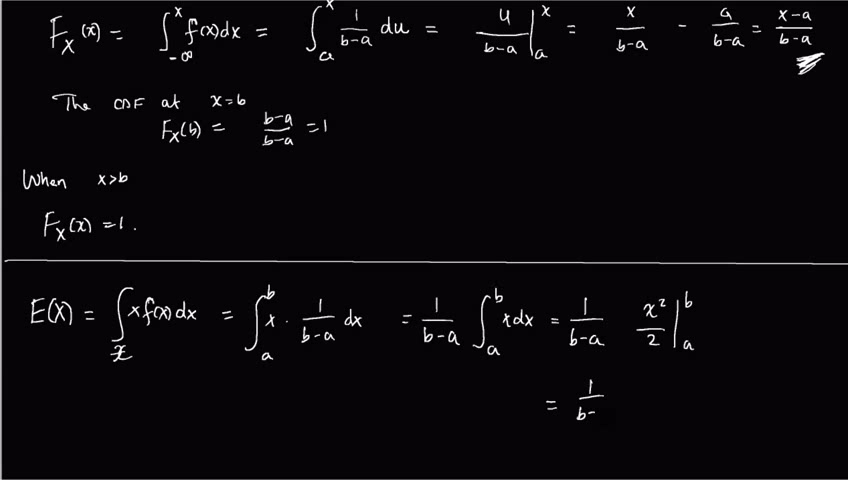 F_X(x) = ∫_{-∞}^{x} f(x)dx = ∫_{a}^{x} 1/(b-a) du = u/(b-a) |_{a}^{x} = x/(b-a) - a/(b-a) = (x-a)/(b-a)
The CDF at x=b
F_X(b) = (b-a)/(b-a) = 1
When x>b
F_X(x) = 1.
E(X) = ∫_{x} x f(x)dx = ∫_{a}^{b} x · 1/(b-a) dx = 1/(b-a) ∫_{a}^{b} x dx = 1/(b-a) x²/2 |_{a}^{b}
= 1/(b-